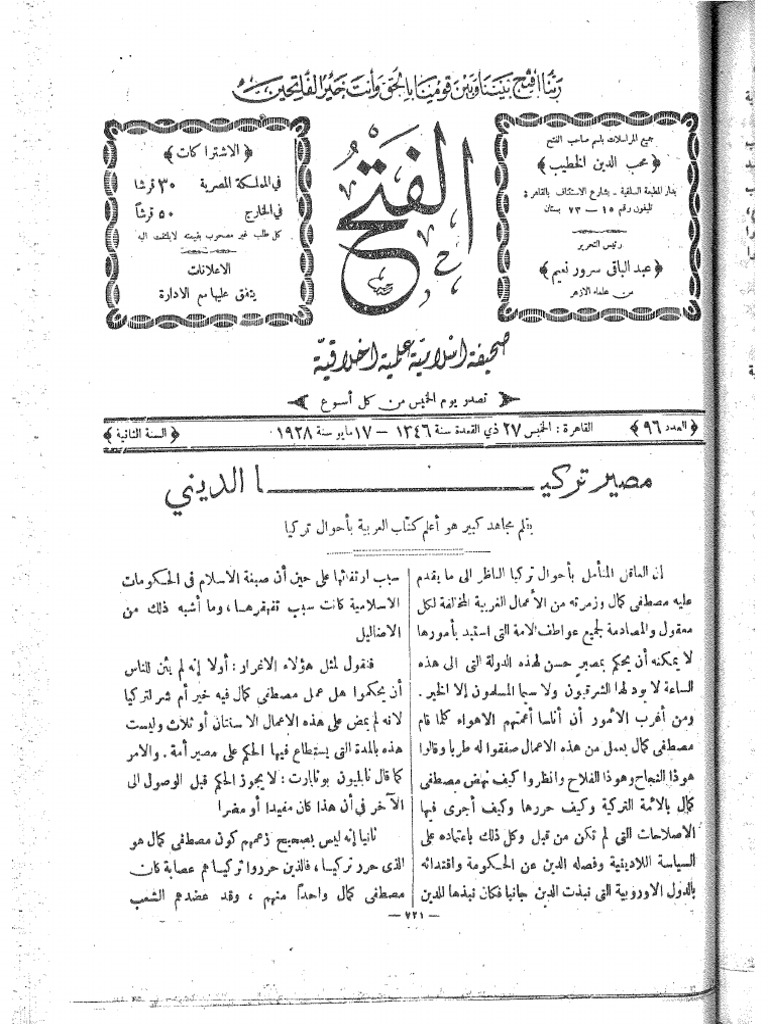 ربنا افتح بيننا وبين قومنا بالحق وأنت خير الفاتحين
جميع المراسلات باسم صاحب الفتح
﴿ محب الدين الخطيب ﴾
بدار المطبعة السلفية ـ بشارع الاستئناف بالقاهرة
تليفون رقم ١٥ — ٧٣ بستان
رئيس التحرير
﴿ عبد الباقي سرور نعيم ﴾
من علماء الازهر
الفتح
﴿ الاشتراكات ﴾
في المملكة المصرية ٣٠ قرشا
في الخارج ٥٠ قرشاً
كل طلب غير مصحوب بقيمته لايلتفت اليه
الاعلانات
يتفق عليها مع الادارة
صحيفة اسلامية علمية اخلاقية
تصدر يوم الخميس من كل أسبوع
﴿ العدد ٩٦ ﴾
القاهرة : الخميس ٢٧ ذي القعدة سنة ١٣٤٦ — ١٧ مايو سنة ١٩٢٨
﴿ السنة الثانية ﴾
مصير تركيـــا الديني
بقلم مجاهد كبير هو أعلم كتاب العربية بأحوال تركيا
إن العاقل المتأمل بأحوال تركيا الناظر الى ما يقدم
عليه مصطفى كمال وزمرته من الأعمال الغريبة المخالفة لكل
معقول والمصادمة لجميع عواطف الامة التى استبد بأمورها
لا يمكنه أن يحكم بمصير حسن لهذه الدولة التى الى هذه
الساعة لا يود لها الشرقيون ولا سيما المسلمون إلا الخير .
ومن أغرب الأمور أن أناسا أعمتهم الاهواء كلما قام
مصطفى كمال بعمل من هذه الاعمال صفقوا له طربا وقالوا
هوذا النجاح وهوذا الفلاح وانظروا كيف نهض مصطفى
كمال بالامة التركية وكيف حررها وكيف أجرى فيها
الاصلاحات التى لم تكن من قبل وكل ذلك باعتماده على
السياسة اللادينية وفصله الدين عن الحكومة واقتدائه
بالدول الاوروبية التى نبذت الدين جانبا فكان نبذها للدين
سبب ارتقائها على حين أن صبغة الاسلام فى الحكومات
الاسلامية كانت سبب تقهقرها ، وما أشبه ذلك من
الاضاليل
فنقول لمثل هؤلاء الاغرار : أولا إنه لم يئن للناس
أن يحكموا هل عمل مصطفى كمال فيه خير أم شر لتركيا
لانه لم يمض على هذه الاعمال الا سنتان أو ثلاث وليست
هذه بالمدة التى يستطاع فيها الحكم على مصير أمة . والامر
كما قال نابليون بونابارت : لا يجوز الحكم قبل الوصول الى
الآخر فى أن هذا كان مفيدا أو مضرا
ثانيا إنه ليس بصحيح زعمهم كون مصطفى كمال هو
الذى حرر تركيا ، فالذين حرروا تركيا هم عصابة كان
مصطفى كمال واحداً منهم ، وقد عضدهم الشعب
— ٧٢١ —